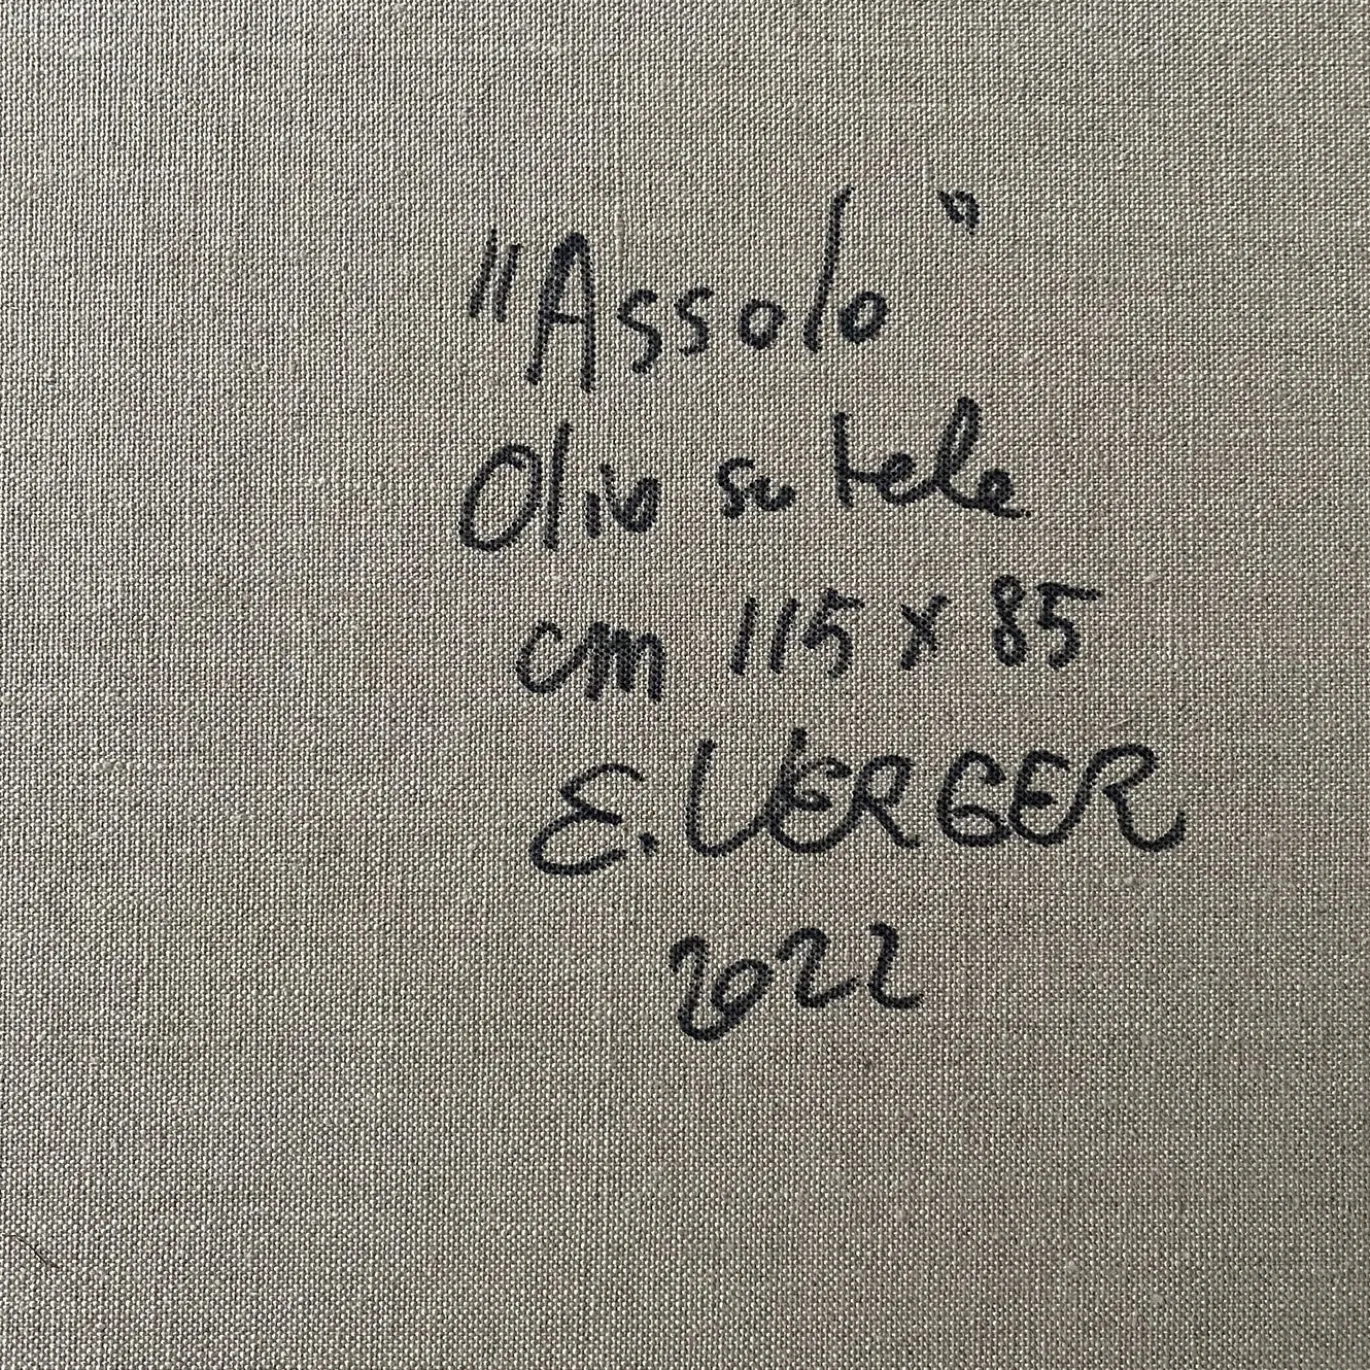 "Assolo"
Olio su tela
cm 115 x 85
E. VERGER
2022